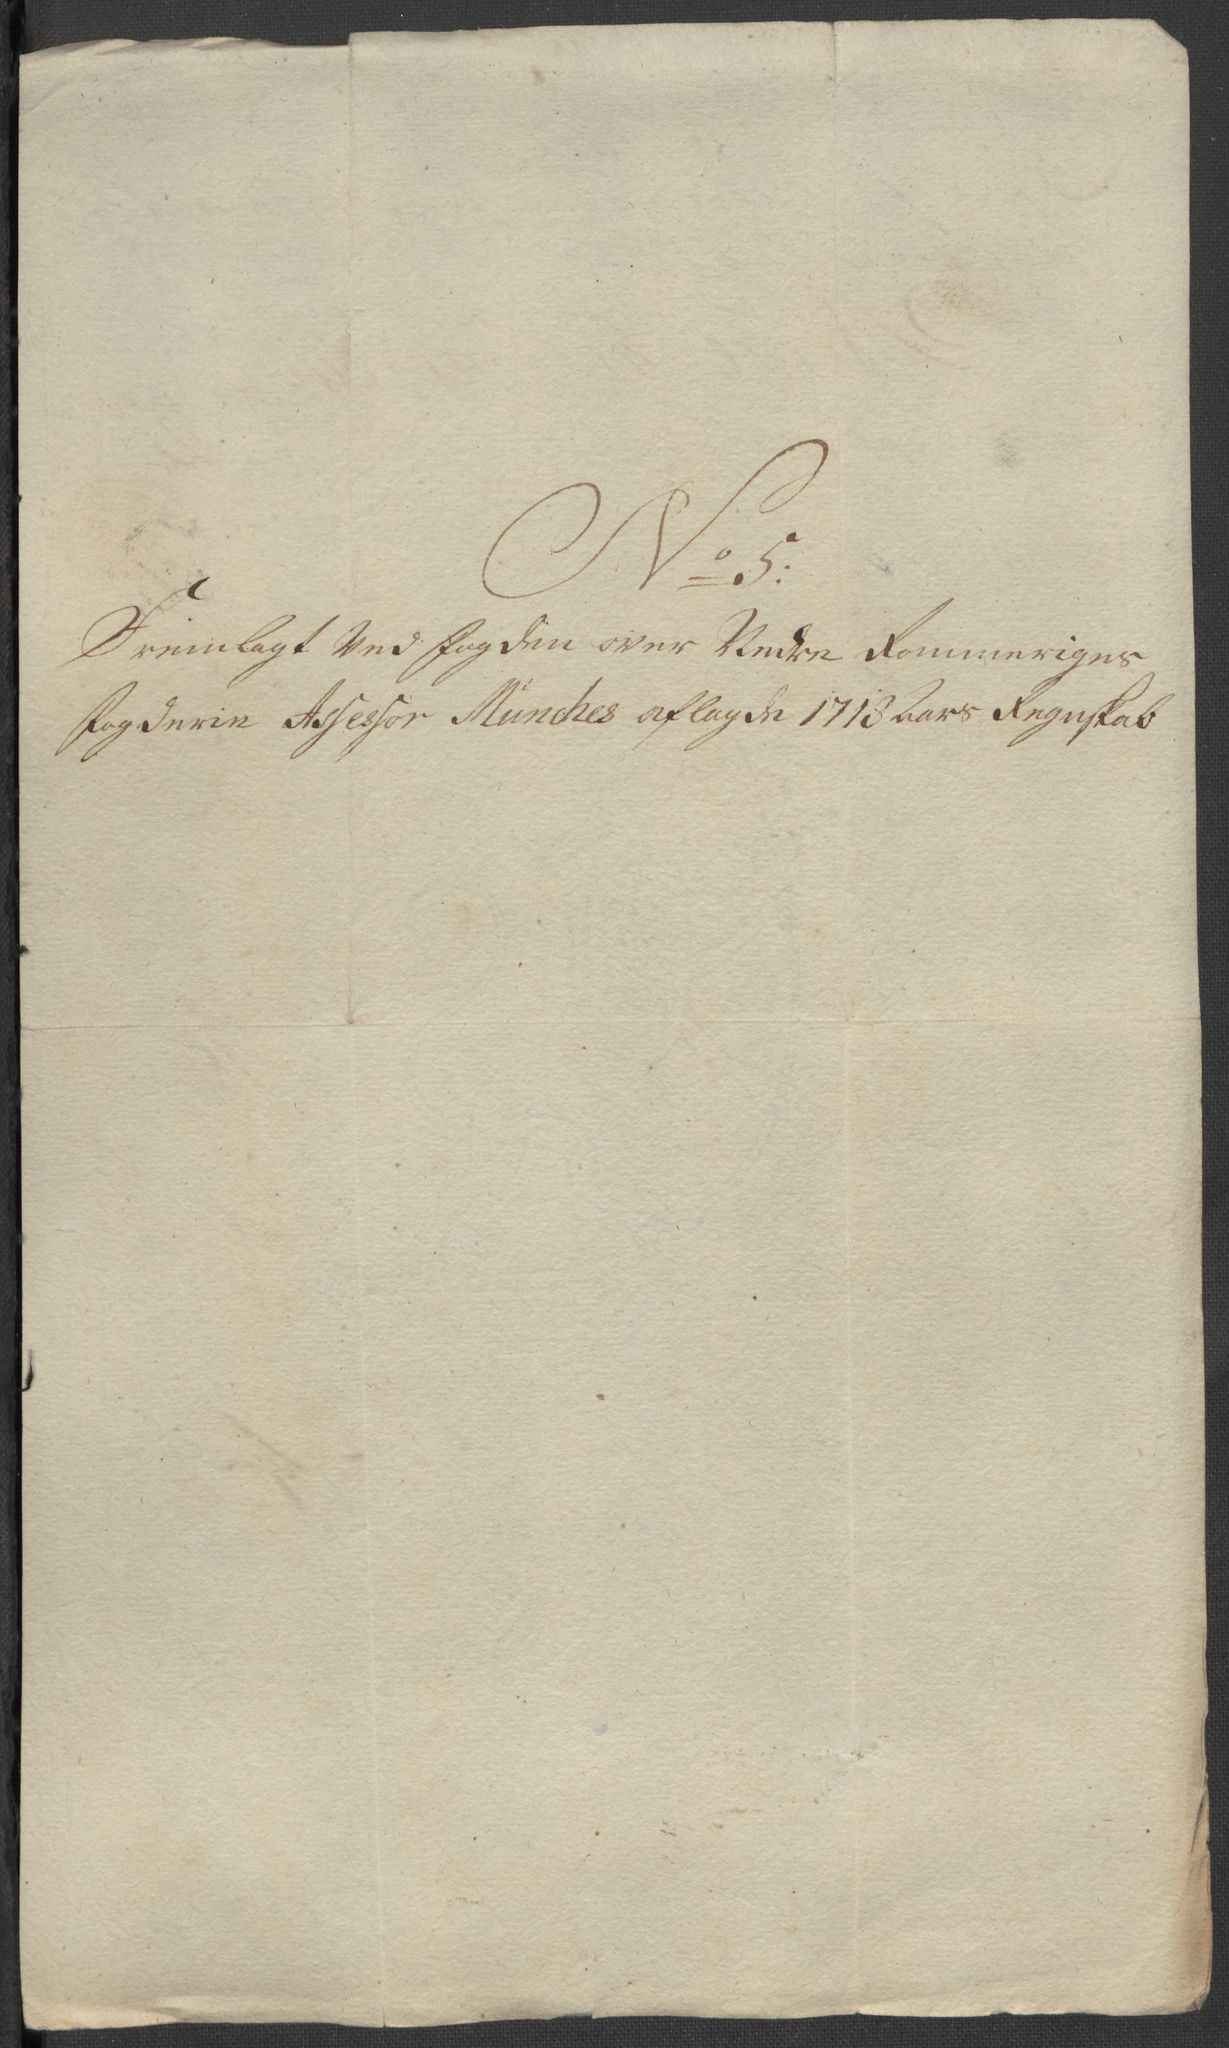 No 5:
Fremlagt Ved Fogden over Nedre Rommeriges
Fogderie Assessor Münches aflagde 1713 Aars Regnskab